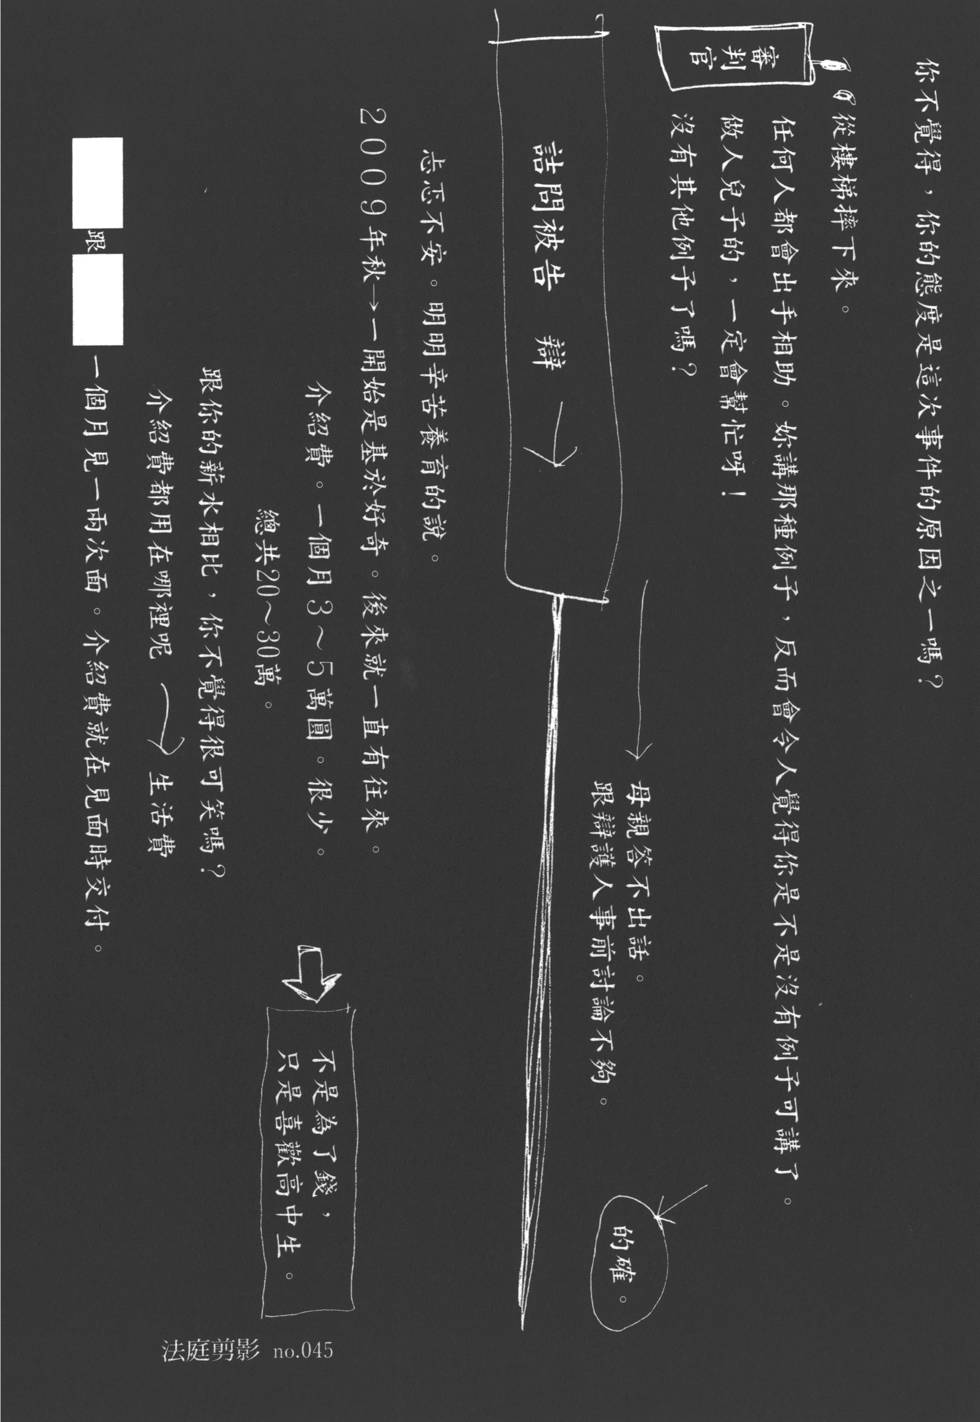 你不覺得，你的態度是這次事件的原因之一嗎？
從樓梯摔下來。
審判官
任何人都會出手相助。妳講那種例子，反而會令人覺得你是不是沒有例子可講了。
做人兒子的，一定會幫忙呀！
沒有其他例子了嗎？
母親答不出話。
跟辯護人事前討論不夠。
的確。
詰問被告 辯
忐忑不安。明明辛苦養育的說。
2009年秋→一開始是基於好奇。後來就一直有往來。
介紹費。一個月3～5萬圓。很少。
總共20～30萬。
不是為了錢，
只是喜歡高中生。
跟你的薪水相比，你不覺得很可笑嗎？
介紹費都用在哪裡呢 → 生活費
跟 一個月見一兩次面。介紹費就在見面時交付。
法庭剪影 no.045